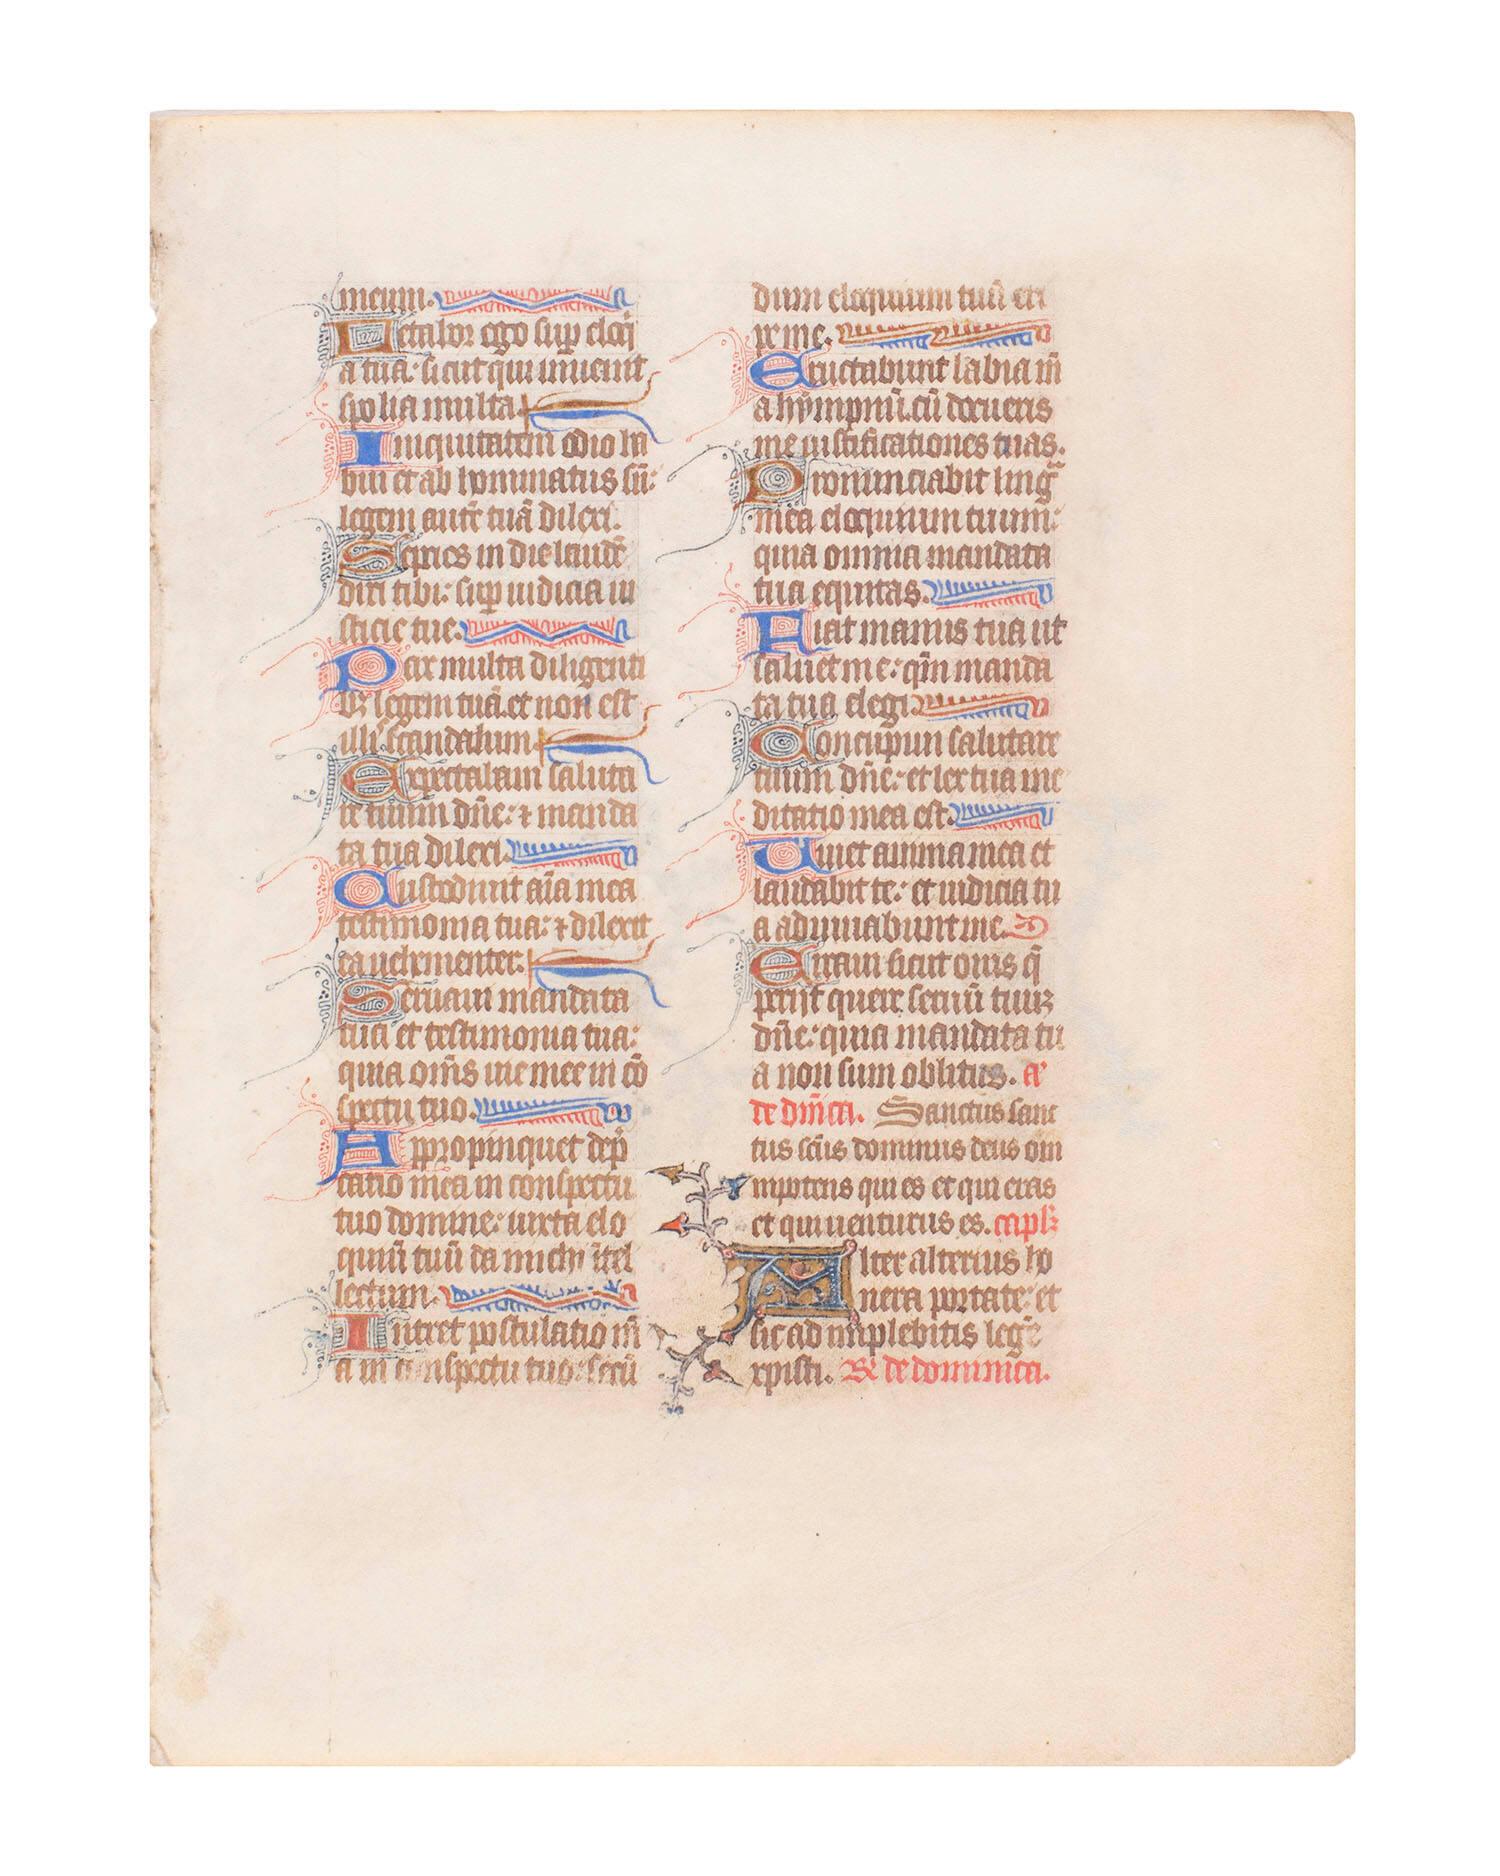 meum.
Letabor ego sup eloq̄
a tua: sicut qui inuenit
spolia multa.
Iniquitatem odio ha
bui et ab hominatus sū:
legem autē tuā dilexi.
Sepcies in die laudē
dixi tibi: sup iudicia iu
sticie tue.
Pax multa diligenti
bꝫ legem tuā et non est
illis scandalum.
Expectabam saluta
re tuum dn̄e: ⁊ manda
ta tua dilexi.
Custodiunt aīa mea
testimonia tua: ⁊ dilexit
ea uehementer.
Seruaui mandata
tua et testimonia tua:
quia om̄s uie mee in cō
spectu tuo.
Appropinquet dep̄
catio mea in conspectu
tuo domine: iuxta elo
quiū tuū da michi ītel
lectum.
Intret postulatio m̄
a in conspectu tuo: secū
dum eloquium tuū eri
pe me.
Eructabunt labia m̄
a hympnū cū docueris
me iustificationes tuas.
Pronunciabit linḡ
mea eloquium tuum:
quia omnia mandata
tua equitas.
Fiat manus tua ut
saluet me: qm̄ manda
ta tua elegi.
Concupiui salutare
tuum dn̄e: et lex tua me
ditatio mea est.
Uiuet anima mea et
laudabit te: et iudicia tu
a adiuuabunt me.
Erraui sicut ouis q̄
perijt quere seruū tuūꝫ
dn̄e: quia mandata tu
a non sum oblitus. a
de dn̄ica. Sanctus sanc
tus scūs dominus deus om
nipotens qui es et qui eras
et qui uenturus es. capl'
Alter alterius ho
nera portate: et
sic adimplebitis legē
xpisti. R̄ de dominica.